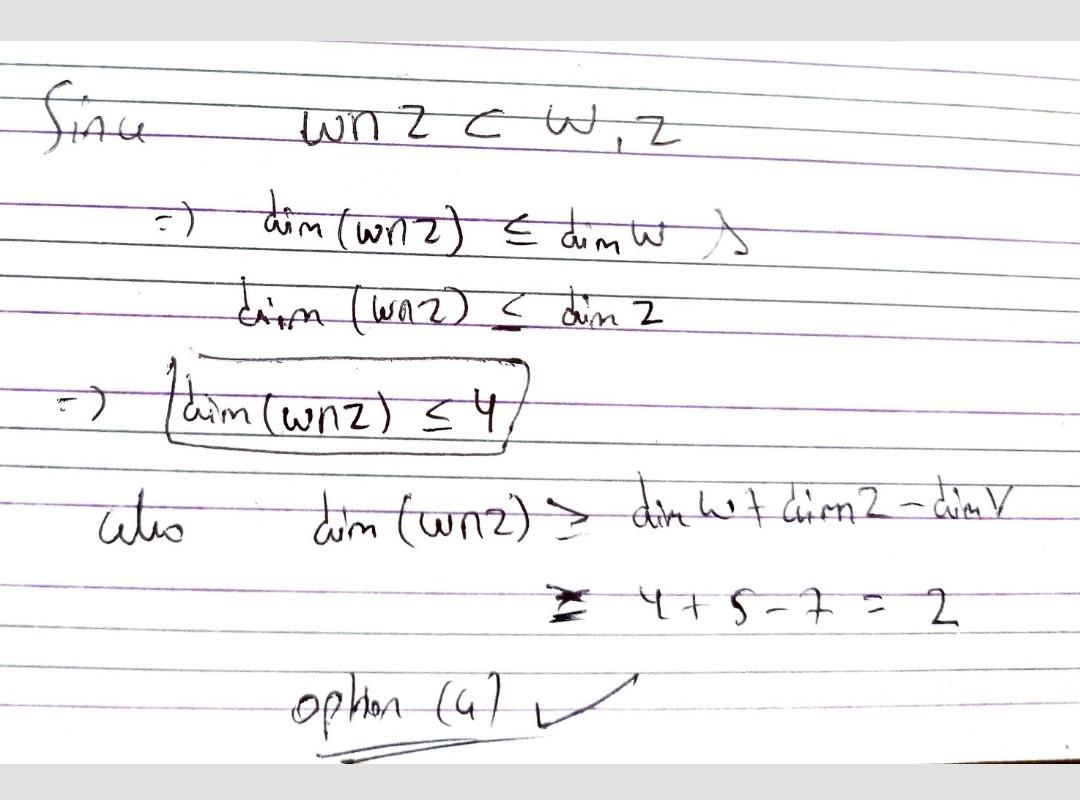 Since W∩Z ⊂ W, Z
=) dim (W∩Z) ≤ dim W &
dim (W∩Z) ≤ dim Z
=) dim (W∩Z) ≤ 4
also dim (W∩Z) ≥ dim W + dim Z - dim V
≥ 4 + 5 - 7 = 2
option (a) ✓